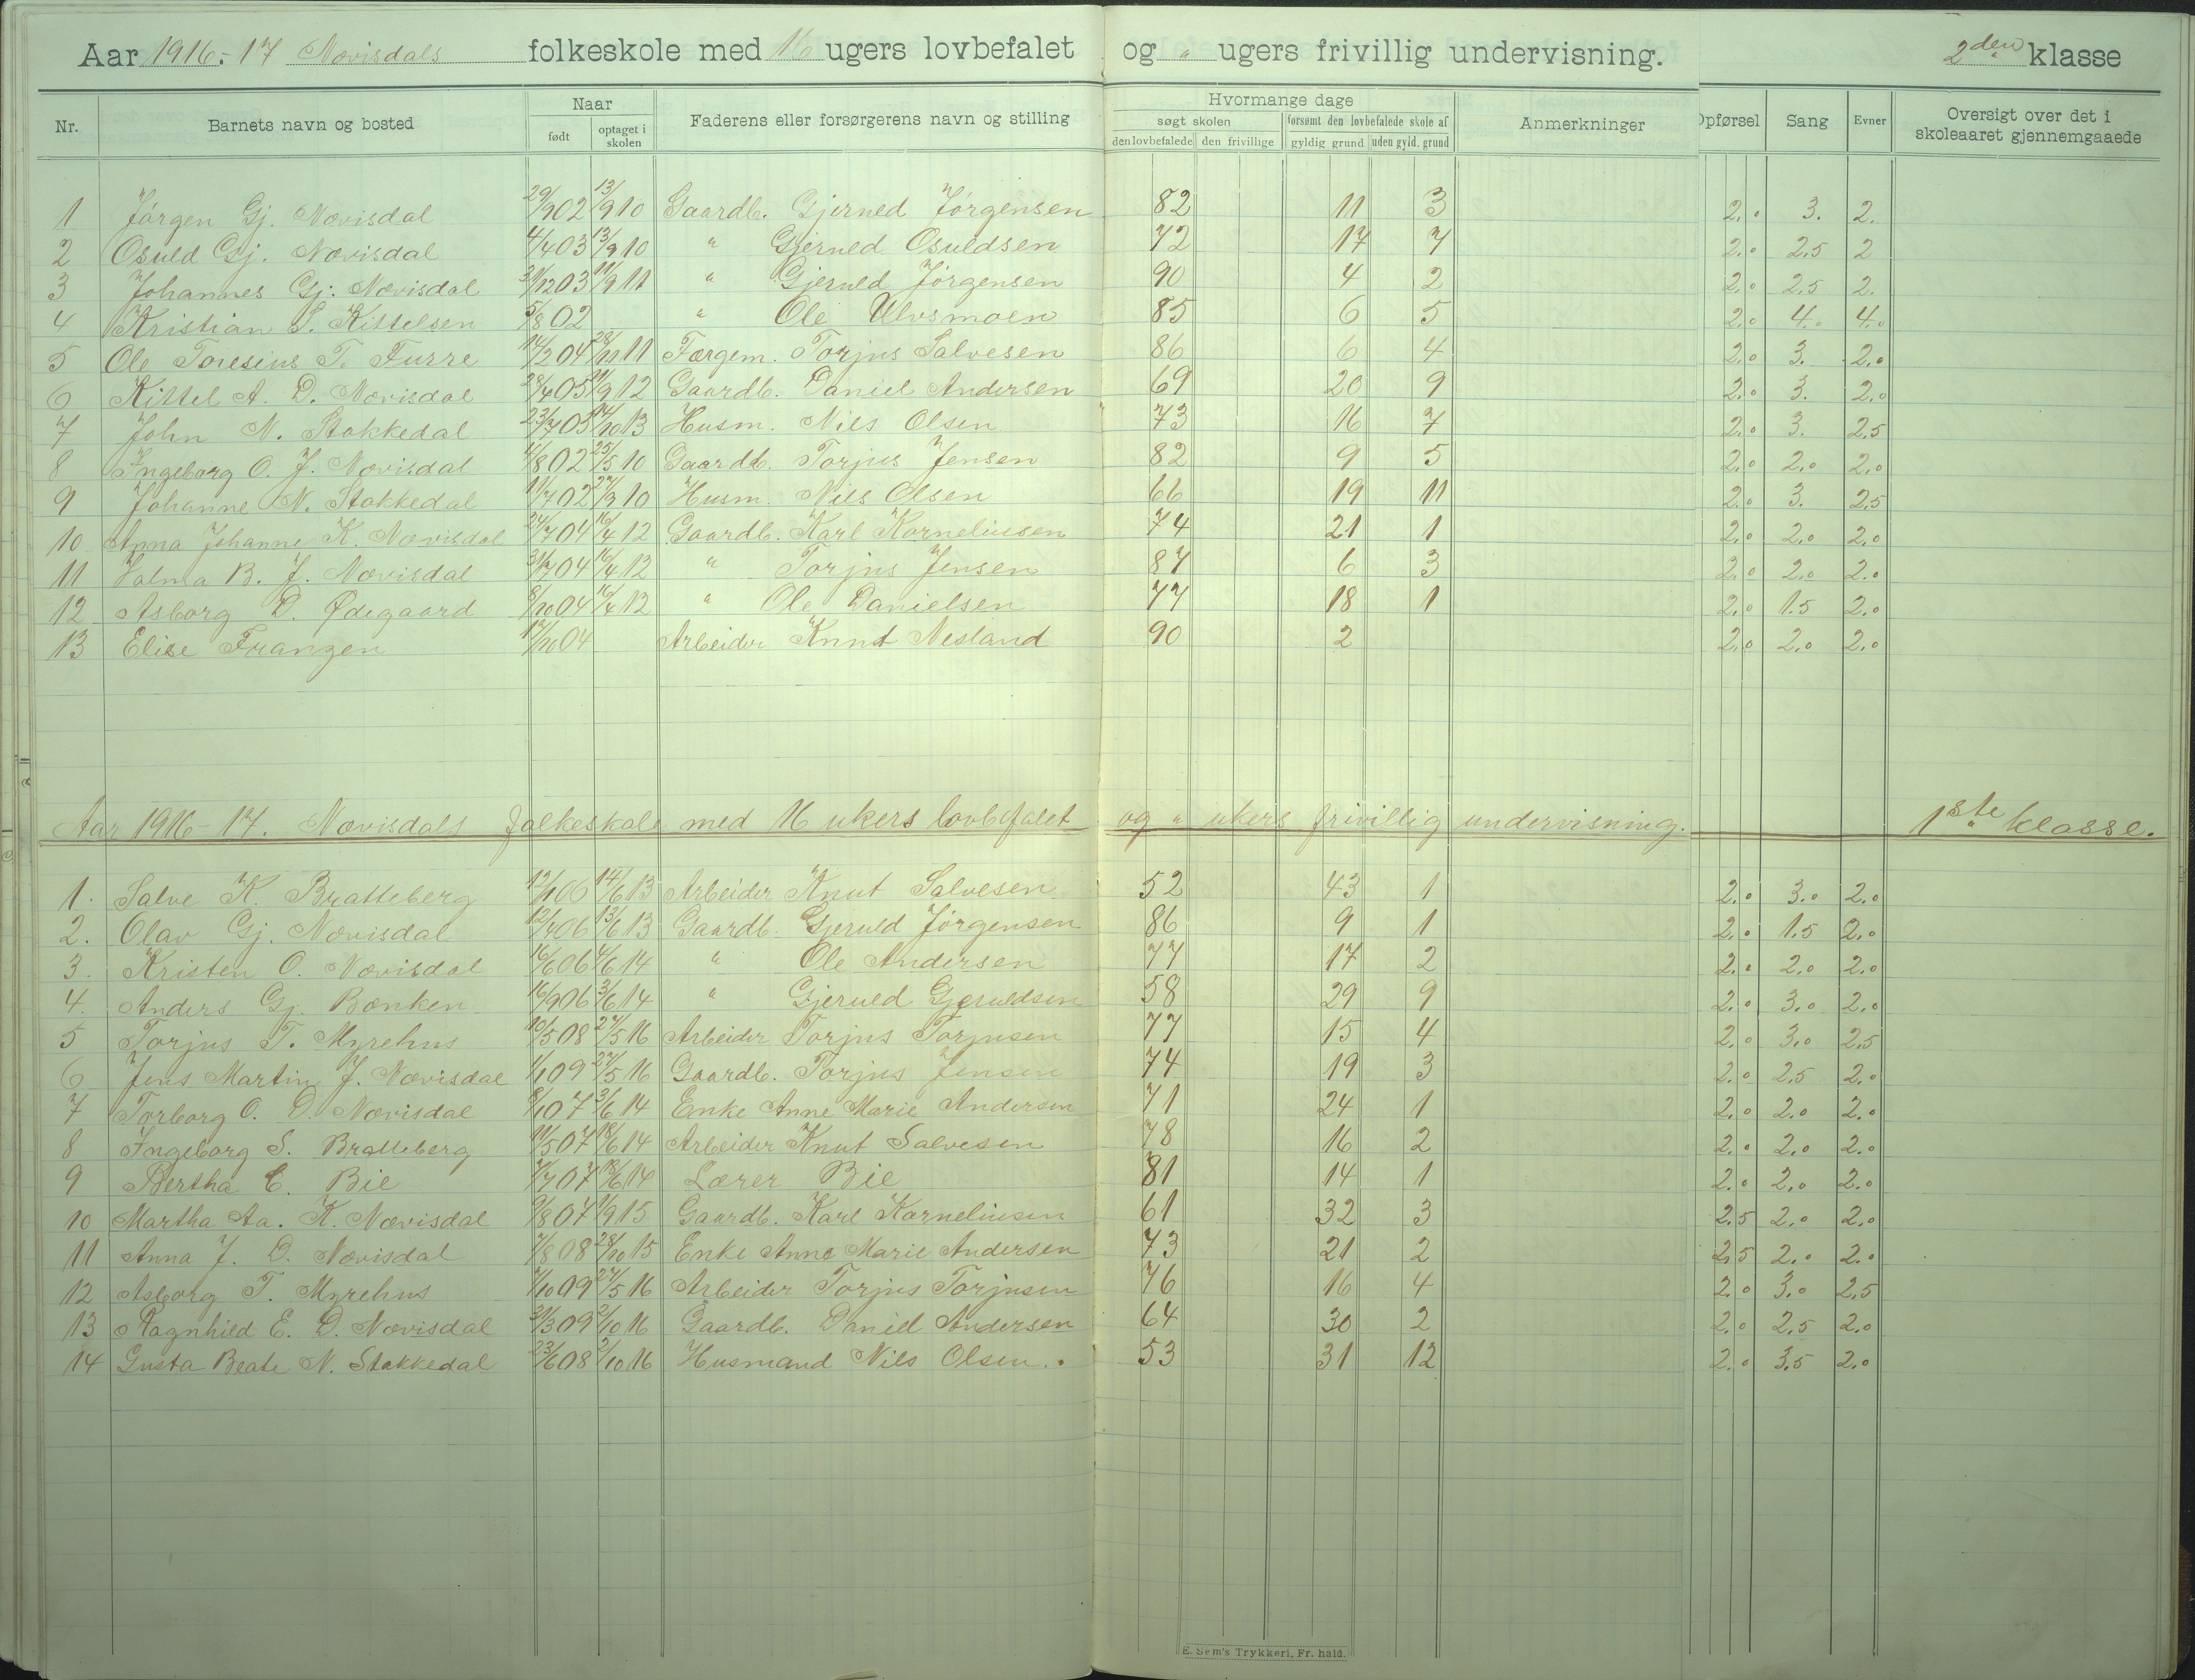 Aar 1916-17 Nævisdals folkeskole med 16 ugers lovbefalet og " ugers frivillig undervisning. 2den klasse
Nr. Barnets navn og bosted Naar født optaget i skolen Faderens eller forsørgerens navn og stilling Hvormange dage søgt skolen den lovbefalede den frivillige forsømt den lovbefalede skole af gyldig grund uden gyld. grund Anmerkninger Opførsel Sang Evner Oversigt over det i skoleaaret gjennemgaaede
1 Jørgen Gj. Nævisdal 29/9 02 13/9 10 Gaardb. Gjeruld Jørgensen 82 11 3 2.0 3. 2.
2 Osuld Gj. Nævisdal 4/4 03 13/9 10 " Gjeruld Osuldsen 72 17 7 2.0 2.5 2
3 Johannes Gj. Nævisdal 31/12 03 11/9 11 " Gjeruld Jørgensen 90 4 2 2.0 2.5 2.
4 Kristian S. Kittelsen 5/8 02 " Ole Ulvsmoen 85 6 5 2.0 4.0 4.0
5 Ole Toresius T. Furre 14/2 04 28/11 11 Færgem. Torjus Salvesen 86 6 4 2.0 3. 2.0
6 Kittel A. D. Nævisdal 28/4 05 11/9 12 Gaardb. Daniel Andersen 69 20 9 2.0 3. 2.0
7 John N. Stokkedal 23/7 05 14/10 13 Husm. Nils Olsen 73 16 7 2.0 3. 2.5
8 Ingeborg O. J. Nævisdal 4/8 02 25/5 10 Gaardb. Torjus Jensen 82 9 5 2.0 2.0 2.0
9 Johanne N. Stokkedal 11/7 02 27/9 10 Husm. Nils Olsen 66 19 11 2.0 3. 2.5
10 Anna Johanne K. Nævisdal 24/7 04 16/4 12 Gaardb. Karl Korneliusen 74 21 1 2.0 2.0 2.0
11 Valma B. J. Nævisdal 31/7 04 16/4 12 " Torjus Jensen 87 6 3 2.0 2.0 2.0
12 Asborg D. Ødegaard 8/10 04 16/4 12 " Ole Danielsen 77 18 1 2.0 1.5 2.0
13 Elise Franzen 12/10 04 Arbeider Knut Nesland 90 2 2.0 2.0 2.0
Aar 1916-17. Nævisdals folkeskole med 16 ukers lovbefalet og " ukers frivillig undervisning. 1ste klasse.
1. Salve K. Bratteberg 12/1 06 14/6 13 Arbeider Knut Salvesen 52 43 1 2.0 3.0 2.0
2. Olav Gj. Nævisdal 12/7 06 13/6 13 Gaardb. Gjeruld Jørgensen 86 9 1 2.0 1.5 2.0
3. Kristen O. Nævisdal 16/6 06 4/6 14 " Ole Andersen 77 17 2 2.0 2.0 2.0
4. Anders Gj. Bænken 16/9 06 3/6 14 " Gjeruld Gjeruldsen 58 29 9 2.0 3.0 2.0
5 Torjus T. Myrehus 10/5 08 27/5 16 Arbeider Torjus Torjusen 77 15 4 2.0 3.0 2.5
6 Jens Martin J. Nævisdal 1/1 09 27/5 16 Gaardb. Torjus Jensen 74 19 3 2.0 2.5 2.0
7 Torborg O. D. Nævisdal 8/1 07 3/6 14 Enke Anne Marie Andersen 71 24 1 2.0 2.0 2.0
8 Ingeborg S. Bratteberg 11/5 07 18/6 14 Arbeider Knut Salvesen 78 16 2 2.0 2.0 2.0
9 Bertha E. Bie 7/7 07 18/6 14 Lærer Bie 81 14 1 2.0 2.0 2.0
10 Martha Aa. K. Nævisdal 9/8 07 1/9 15 Gaardb. Karl Korneliusen 61 32 3 2.5 2.0 2.0
11 Anna J. D. Nævisdal 7/8 08 28/10 15 Enke Anne Marie Andersen 73 21 2 2.5 2.0 2.0
12 Asborg T. Myrehus 7/10 09 27/5 16 Arbeider Torjus Torjusen 76 16 4 2.0 3.0 2.5
13 Ragnhild E. D. Nævisdal 31/3 09 2/10 16 Gaardb. Daniel Andersen 64 30 2 2.0 2.5 2.0
14 Gusta Beate N. Stokkedal 23/6 08 2/10 16 Husmand Nils Olsen. 53 31 12 2.0 3.5 2.0
E. Sem's Trykkeri, Fr.hald.